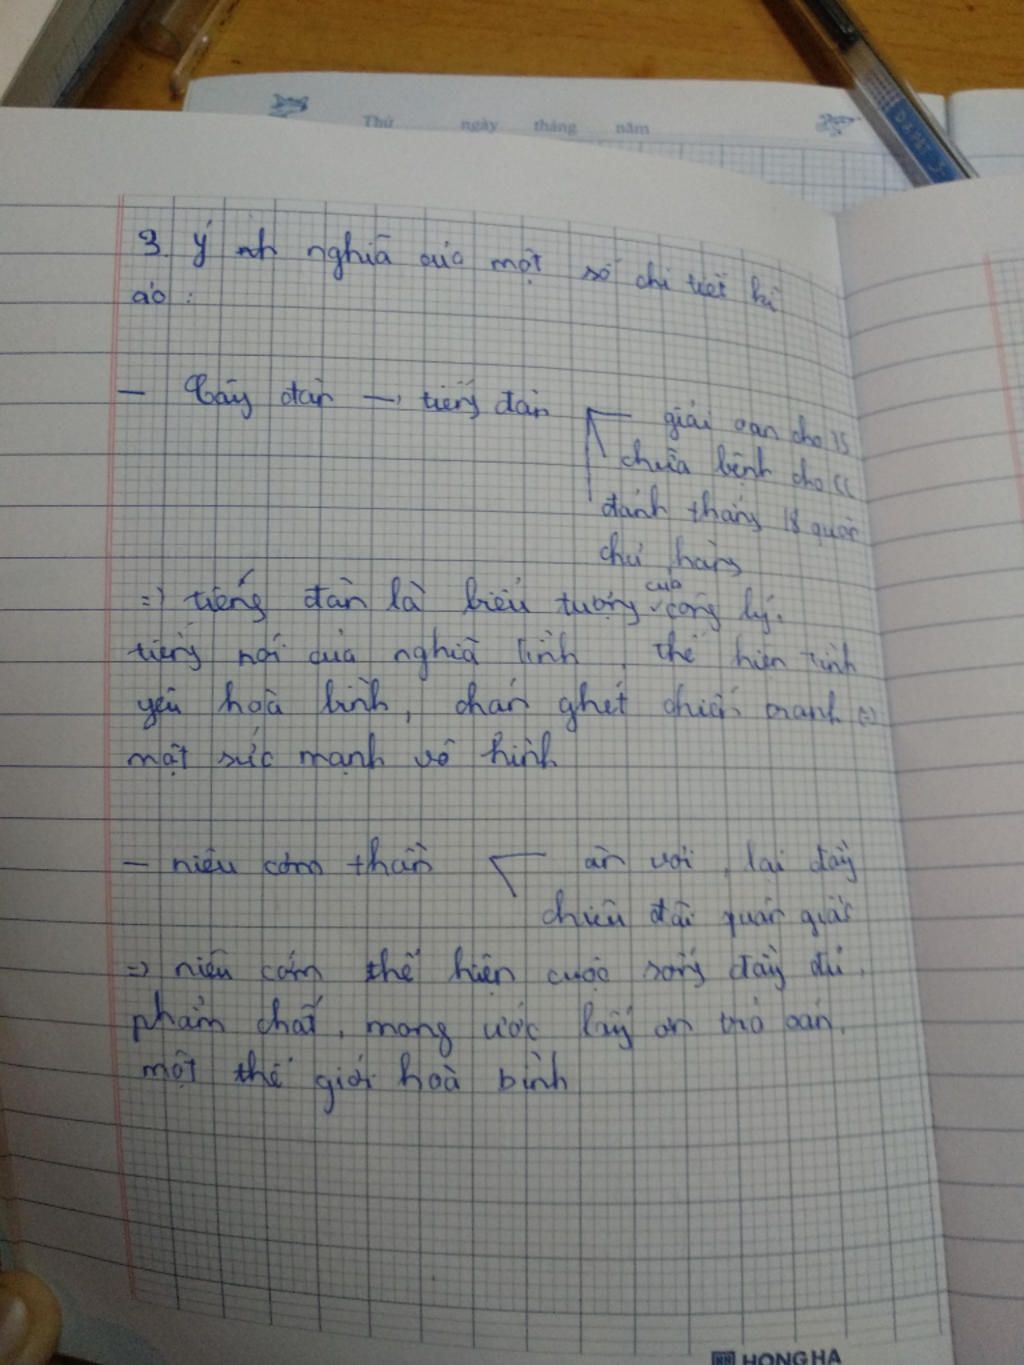 Thứ ngày tháng năm
3. Ý nghĩa của một số chi tiết kì
ảo :
- Cây đàn → tiếng đàn
giải oan cho TS
chữa bệnh cho CC
đánh thắng 18 quân
chư hầu
=) tiếng đàn là biểu tượng của công lý.
tiếng nói của nghĩa tình, thể hiện tình
yêu hoà bình, chán ghét chiến tranh =)
một sức mạnh vô hình
- niêu cơm thần
ăn vơi, lại đầy
chiêu đãi quân giặc
=) niêu cơm thể hiện cuộc sống đầy đủ,
phẩm chất, mong ước lấy ơn trả oán,
một thế giới hoà bình
HONG HA